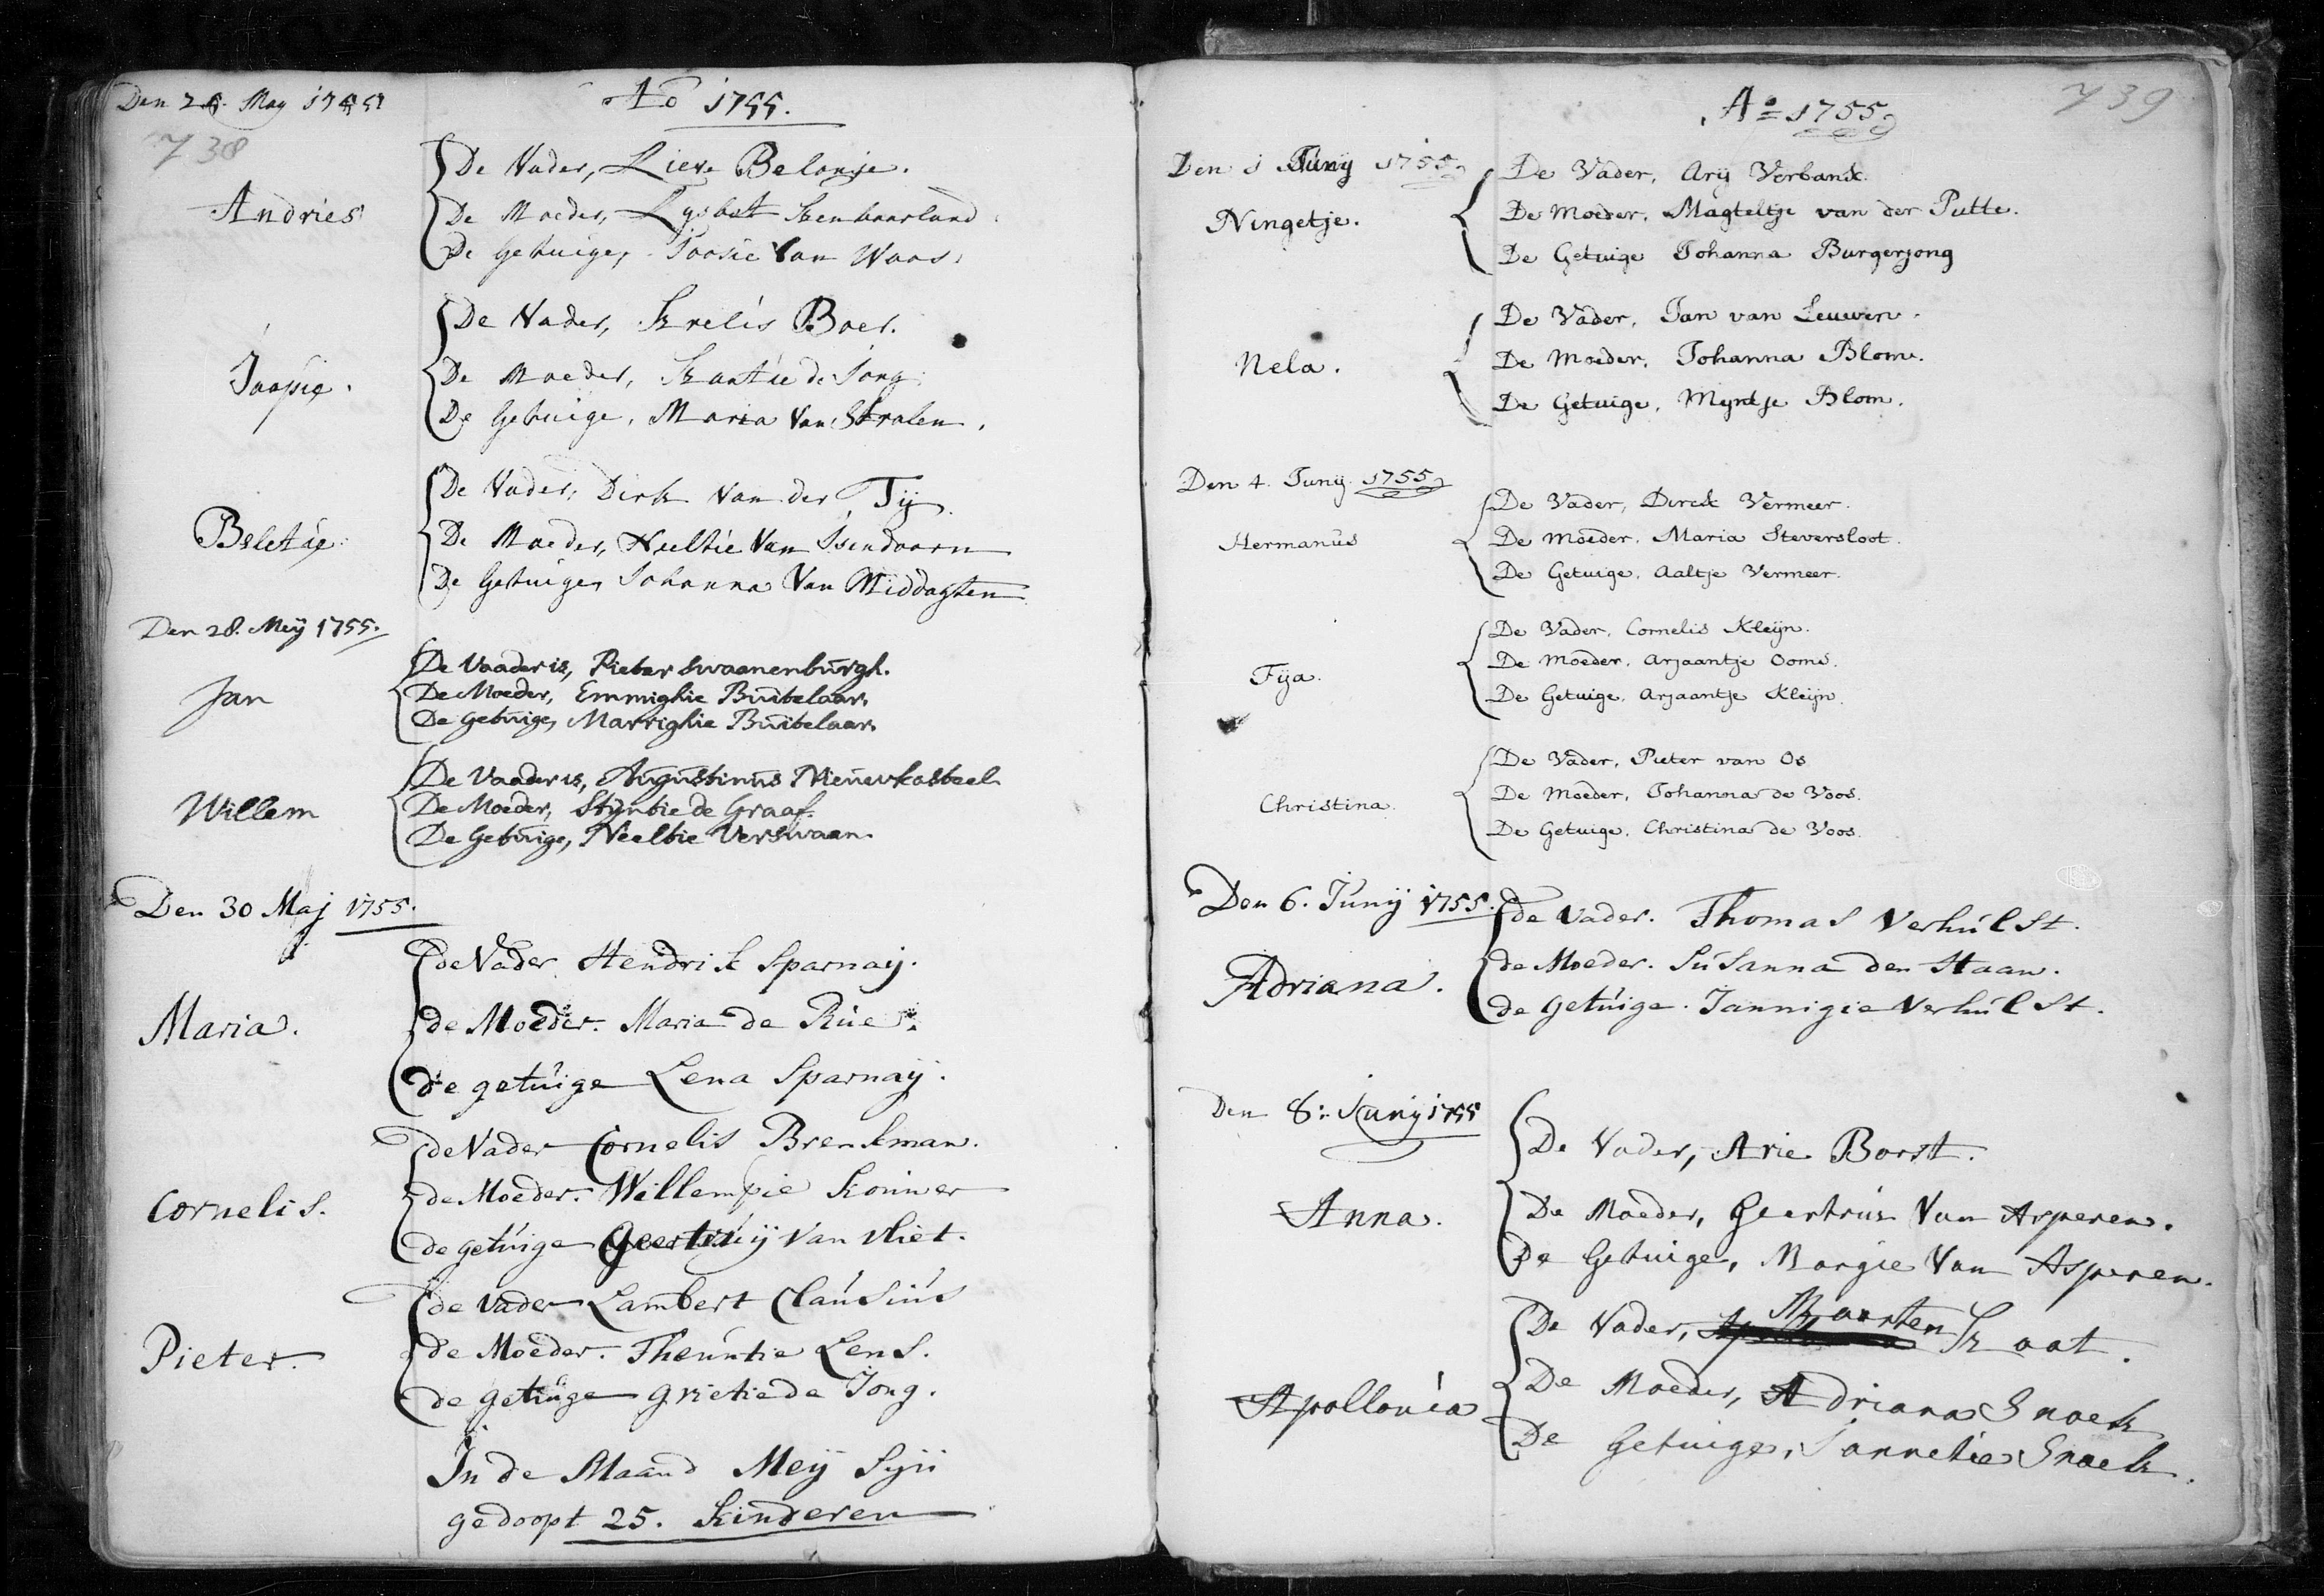 Den 28. May 1755
Ao 1755.
738
Andries
De Vader, Lieve Belonje.
De Moeder, Lysbet
De Getuige, Joosie Van Waas.
Jaapie.
De Vader, Krelis Boer.
De Moeder, de Jong.
De Getuige, Maria Van Stralen.
Beletie.
De Vader, Dirk Van der Tij.
De Moeder, Neeltie Van Isendoorn
De Getuige, Johanna Van Middagten
Den 28. Meij 1755.
Jan
De Vaader is, Pieter Swaanenburgh.
De Moeder, Emmighie Buitelaar.
De Getuige, Marrighie Buitelaar.
Willem
De Vaader is, Augustinus Nieuwkasteel
De Moeder, Stijntie de Graaf.
De Getuige, Neeltie Verswaan.
Den 30 Maj 1755.
Maria.
de Vader Hendrik Sparnaij.
de Moeder. Maria de Rue.
de getuige Lena Sparnaij.
Cornelis.
de Vader Cornelis Brenkman.
de Moeder. Willempie
de getuige Geertruij Van Vliet.
Pieter.
de Vader Lambert Clausius
de Moeder. Theuntie Lens.
de getuige Grietie de Jong.
In de Maand Meij Sijn
gedoopt 25. Kinderen
739
Ao 1755
Den 1 Junij 1755
Ningetje.
De Vader, Arij Verbank.
De Moeder, Magteltje van der Putte.
De Getuige Johanna Burgerjong
Nela.
De Vader, Jan van Leuwen.
De Moeder, Johanna Blom.
De Getuige, Myntje Blom.
Den 4. Junij 1755
Hermanus
De Vader, Dirck Vermeer.
De Moeder, Maria Steversloot.
De Getuige, Aaltje Vermeer.
Fija.
De Vader, Cornelis Kleijn.
De Moeder, Arjaantje Ooms.
De Getuige, Arjaantje Kleijn.
Christina.
De Vader, Pieter van Os
De Moeder, Johanna de Voos.
De Getuige, Christina de Voos.
Den 6. Junij 1755.
Adriana.
de Vader. Thomas Verhulst.
de Moeder. Susanna den Haan.
de Getuige. Jannigie Verhulst.
Den 8: Junij 1755
Anna.
De Vader, Arie Borst.
De Moeder, Geertrui Van Asperen.
De Getuige, Margie Van Asperen.
Apollonia
De Vader, Maarten Kaat.
De Moeder, Adriana Snoek
De Getuige, Jannetie Snoek.